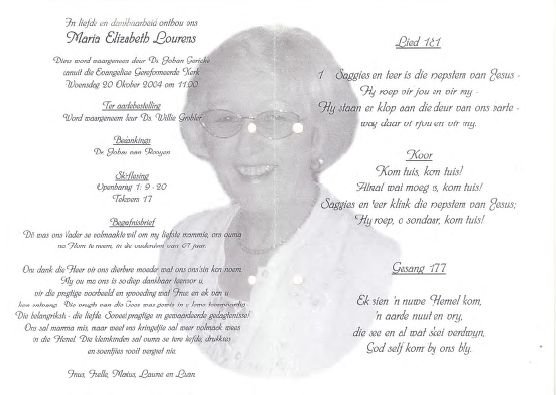 In liefde en dankbaarheid onthou ons
Maria Elizabeth Lourens
Diens word waargeneem deur Ds. Johan Gericke
vanuit die Evangelise Gereformeerde Kerk
Woensdag 20 Oktober 2004 om 11:00
Ter aardebestelling
Word waargeneem deur Ds. Willie Grobler
Beiankings
Ds. Johan van Rooyen
Skriflesing
Openbaring 1: 9 - 20
Teksvers 17
Begrafnisbrief
Dit was ons Vader se volmaakte wil om my liefste mammie, ons ouma
na Hom te neem, in die ouderdom van 67 jaar.
Ons dank die Heer vir ons dierbare moeder wat ons ons s'n kon noem
My ou ma ons is so diep dankbaar teenoor u,
vir die pragtige voorbeeld en opvoeding wat Fritz en ek van u
kon ontvang. Die vrugte van die Gees was
Die belangrikste - die liefde. Soveel pragtige en gewaardeerde gedagtenisse!
Ons sal mamma mis, maar weet ons kringetjie sal weer volmaak wees
in die Hemel. Die kleinkinders sal ouma se tere liefde, drukkies
en soentjies nooit vergeet nie.
Lied 181
1 Saggies en teer is die roepstem van Jesus -
Hy roep vir jou en vir my -
Hy staan er klop aan die deur van ons harte -
wag daar vir jou en vir my.
Koor
Kom tuis, kom tuis!
Almal wat moeg is, kom tuis!
Saggies en teer klink die roepstem van Jesus;
Hy roep, o sondaar, kom tuis!
Gesang 177
Ek sien 'n nuwe Hemel kom,
'n aarde nuut en vry,
die see en al wat skei verdwyn,
God self kom by ons bly.